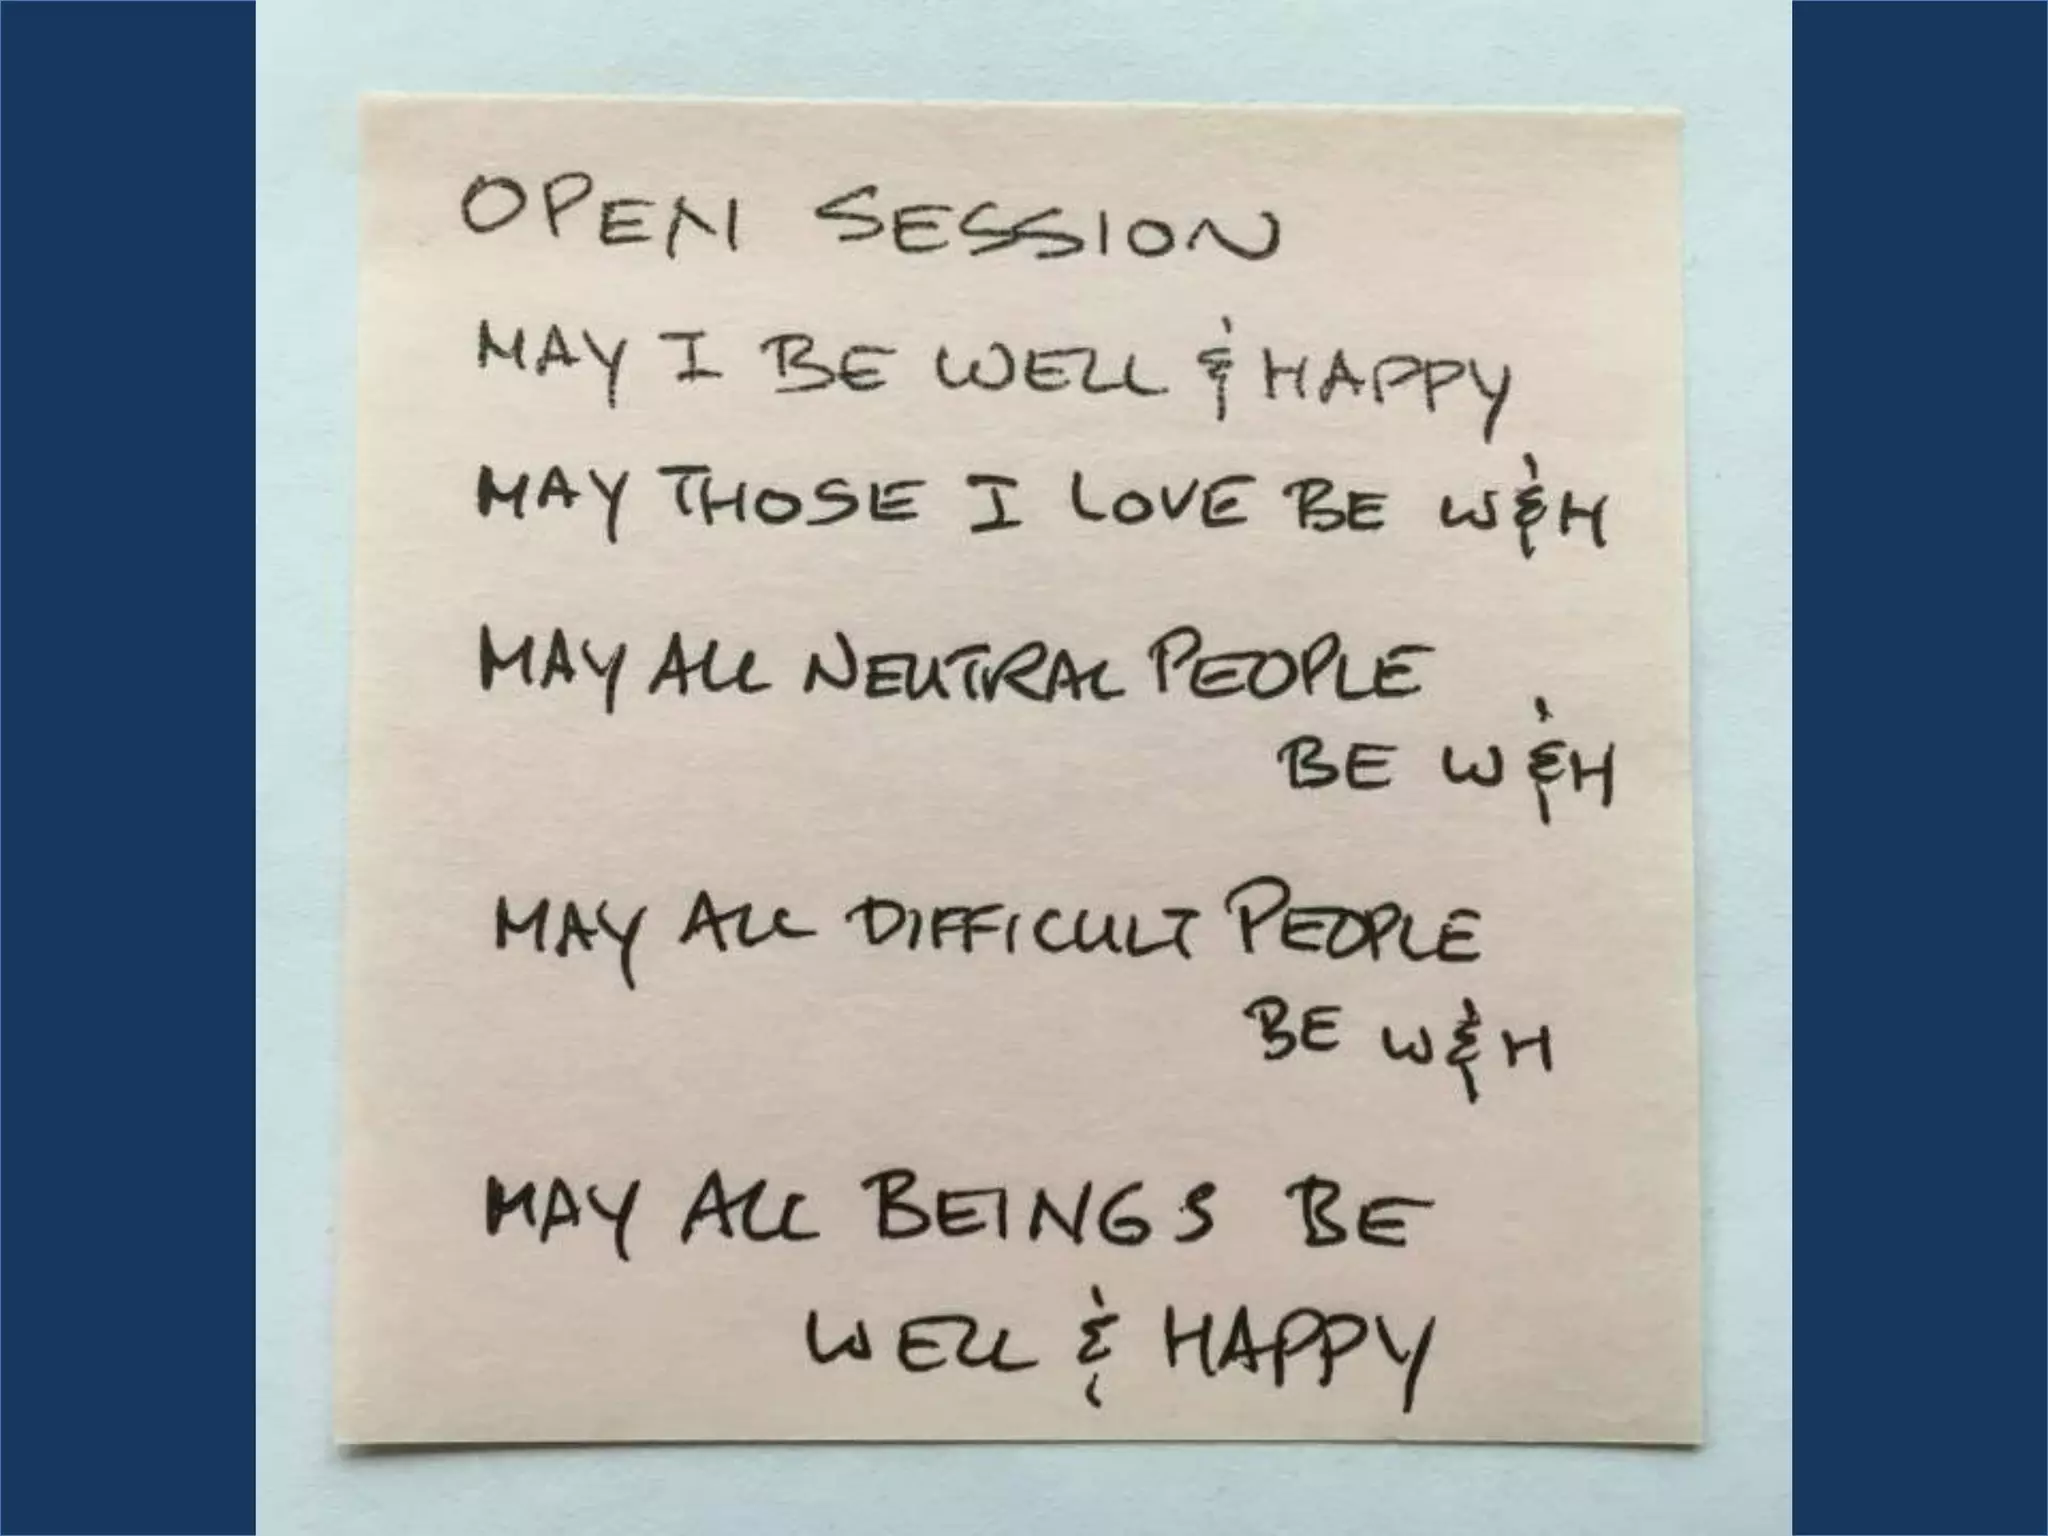 OPEN SESSION
MAY I BE WELL & HAPPY
MAY THOSE I LOVE BE W&H
MAY ALL NEUTRAL PEOPLE
BE W&H
MAY ALL DIFFICULT PEOPLE
BE W&H
MAY ALL BEINGS BE
WELL & HAPPY